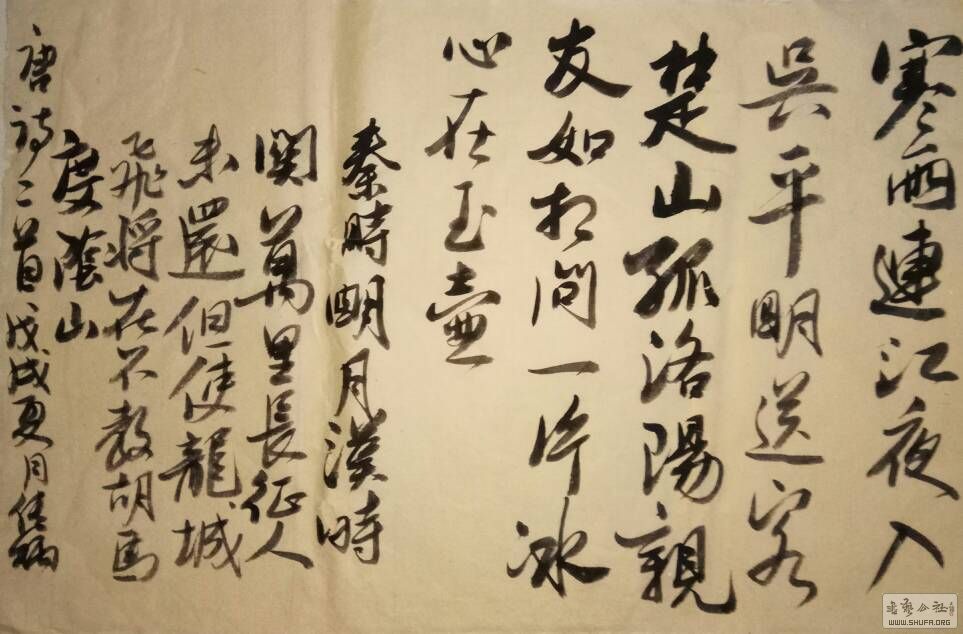 寒雨連江夜入
吳平明送客
楚山孤洛陽親
友如相問一片冰
心在玉壺
秦時明月漢時
關萬里長征人
未還但使龍城
飛將在不教胡馬
度陰山
唐詩二首戊戌夏月
書藝公社
WWW.SHUFA.ORG